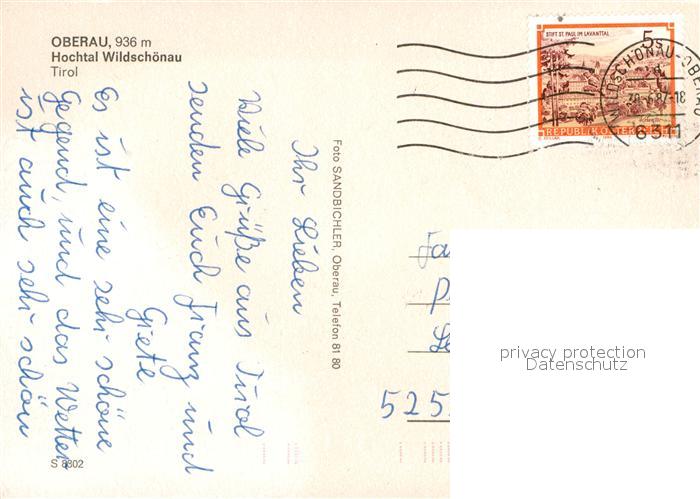 OBERAU, 936 m
Hochtal Wildschönau
Tirol
Ihr Lieben
Viele Grüße aus Tirol
senden Euch Franz und
Giete
Es ist eine sehr schöne
Gegend, und das Wetter
ist auch sehr schön
S 8302
Foto SANDBICHLER, Oberau, Telefon 81 80
STIFT ST. PAUL IM LAVANTTAL
5s
REPUBLIK ÖSTERREICH
WILDSCHÖNAU-OBERAU
6311
525
privacy protection
Datenschutz